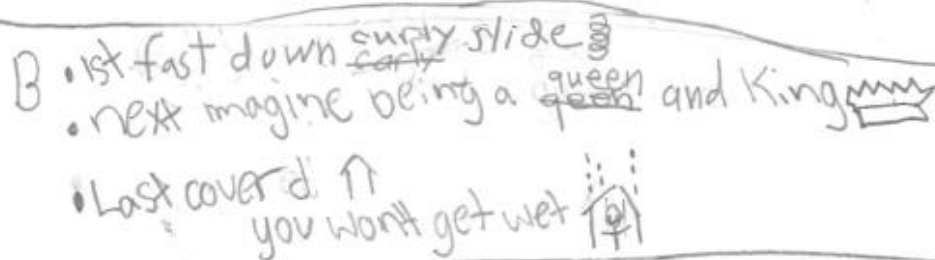 B • 1st fast down curly slide
• next imagine being a queen and King
• Last coverd
you won't get wet